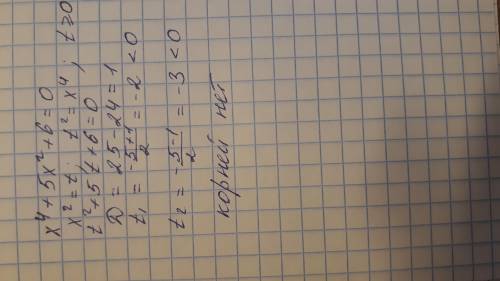 x⁴ + 5x² + 6 = 0
x² = t; t² = x⁴; t ≥ 0
t² + 5t + 6 = 0
D = 25 - 24 = 1
t₁ = (-5+1)/2 = -2 < 0
t₂ = (-5-1)/2 = -3 < 0
корней нет